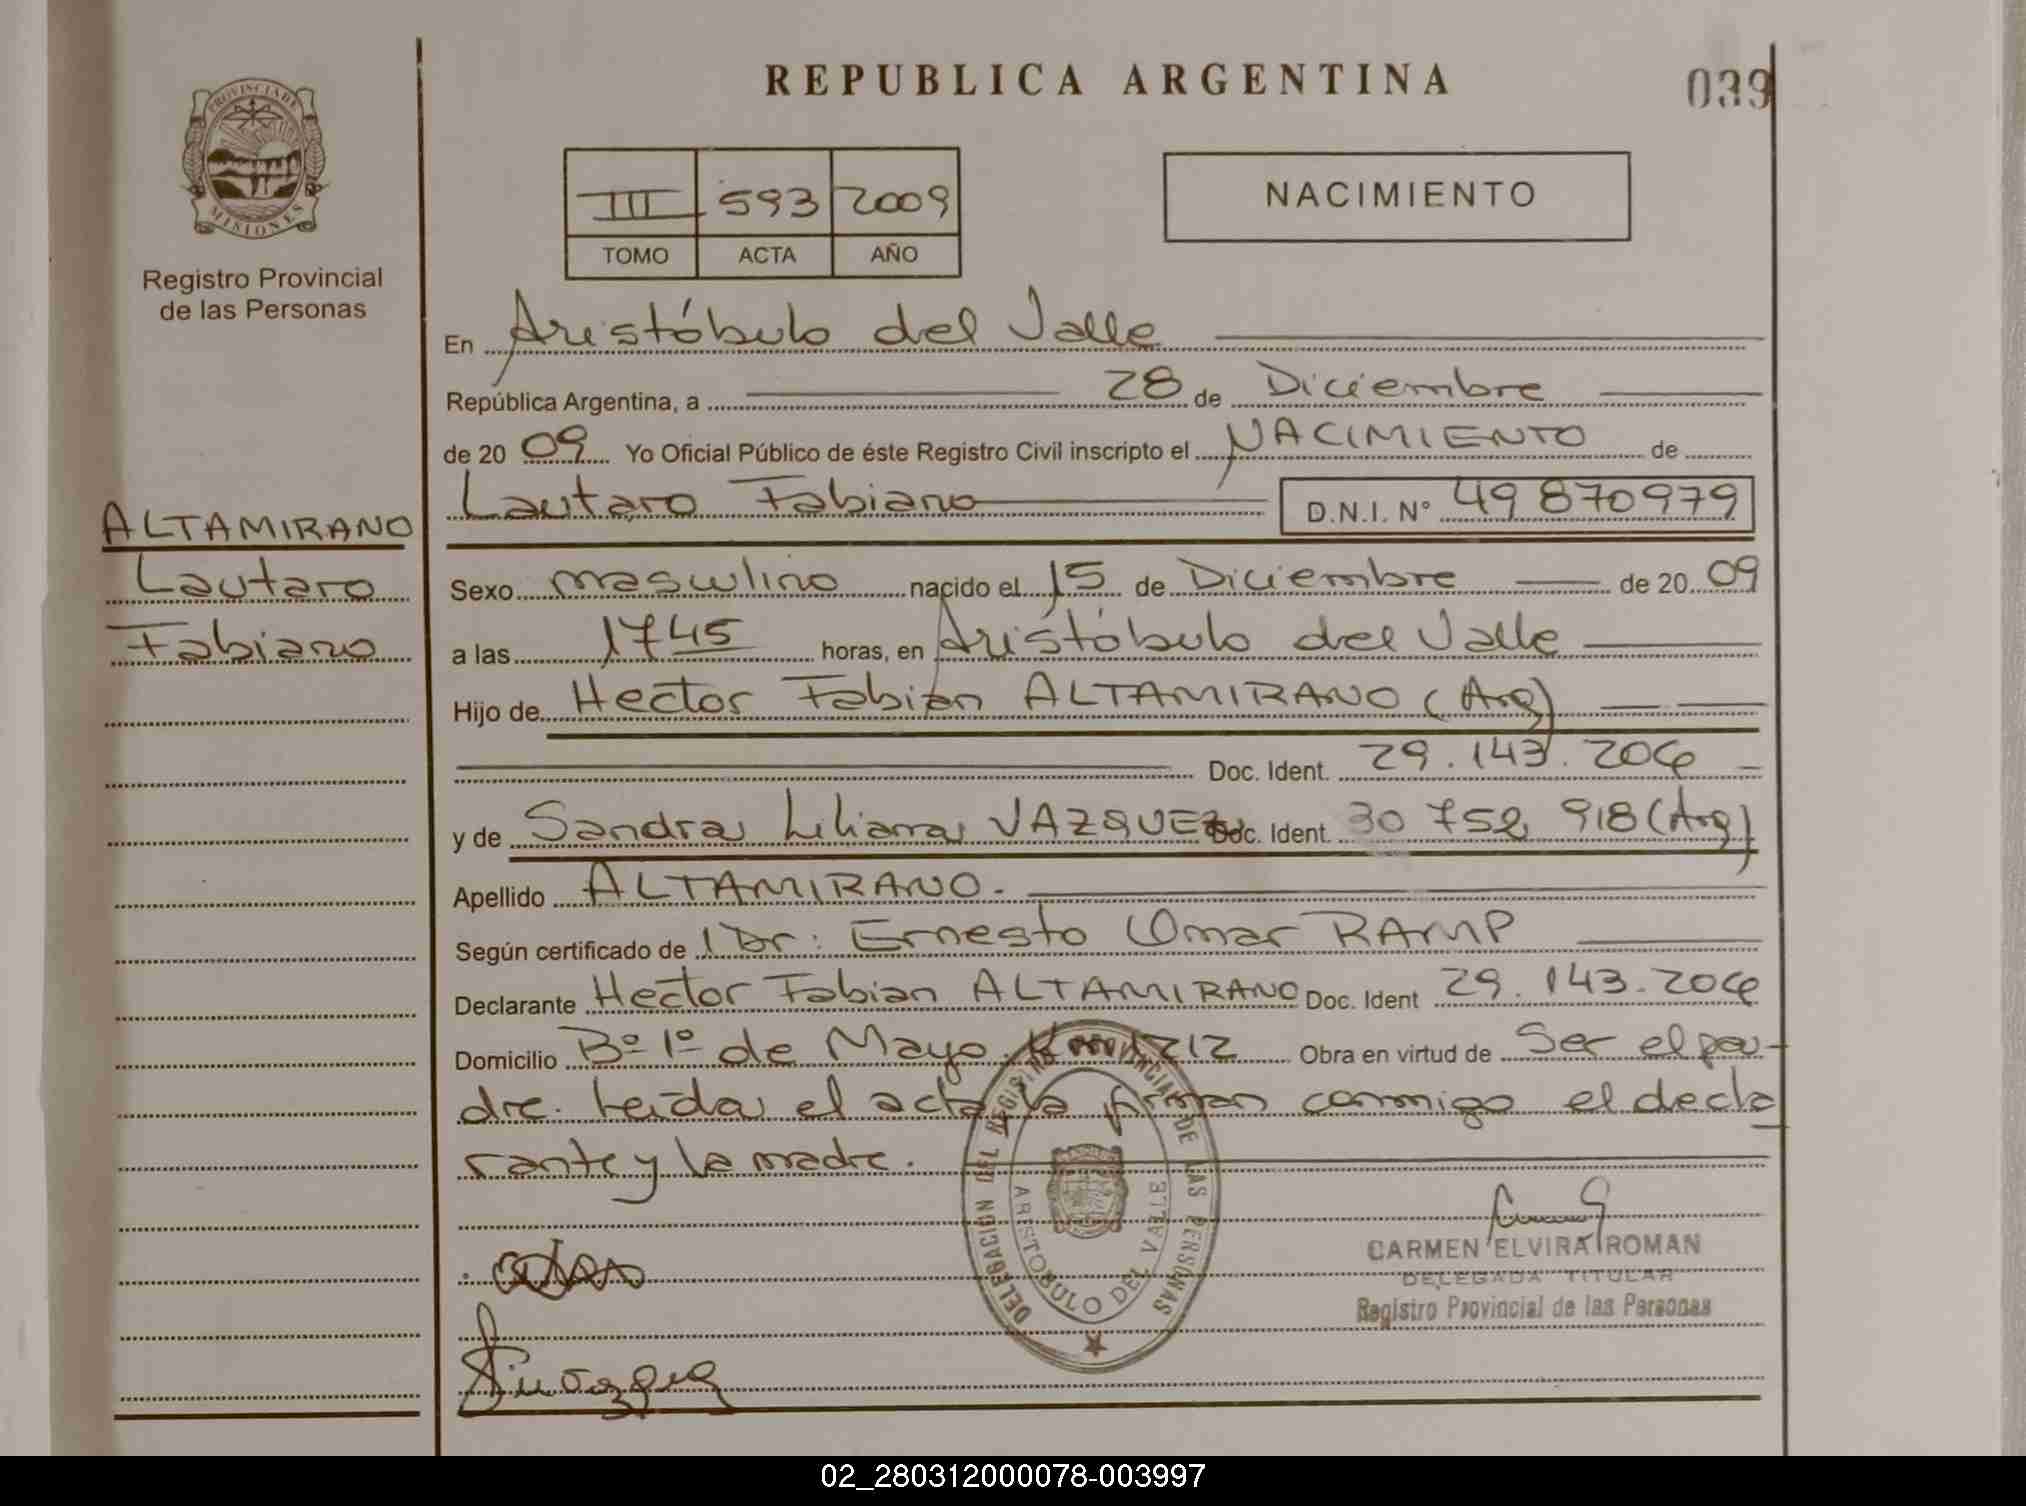 REPUBLICA ARGENTINA
039
PROVINCIA DE MISIONES
Registro Provincial
de las Personas
III 593 2009
TOMO ACTA AÑO
NACIMIENTO
En Aristóbulo del Valle
República Argentina, a 28 de Diciembre
de 2009 Yo Oficial Público de éste Registro Civil inscripto el NACIMIENTO de
Lautaro Fabiano D.N.I. N° 49 870979
ALTAMIRANO
Lautaro
Fabiano
Sexo masculino nacido el 15 de Diciembre de 2009
a las 1745 horas, en Aristóbulo del Valle
Hijo de Hector Fabian ALTAMIRANO (Arg)
Doc. Ident. 29.143.206
y de Sandra Liliana VAZQUEZ Doc. Ident. 30 752 918 (Arg)
Apellido ALTAMIRANO.
Según certificado de Dr: Ernesto Omar RAMP
Declarante Hector Fabian ALTAMIRANO Doc. Ident 29.143.206
Domicilio Bº 1º de Mayo Km 1212 Obra en virtud de Ser el pa-
dre. Leída el acta la firman conmigo el decla
rante y la madre.
DELEGACION DEL REGISTRO PROVINCIAL DE LAS PERSONAS
ARISTOBULO DEL VALLE
CARMEN ELVIRA ROMAN
DELEGADA TITULAR
Registro Provincial de las Personas
02_280312000078-003997